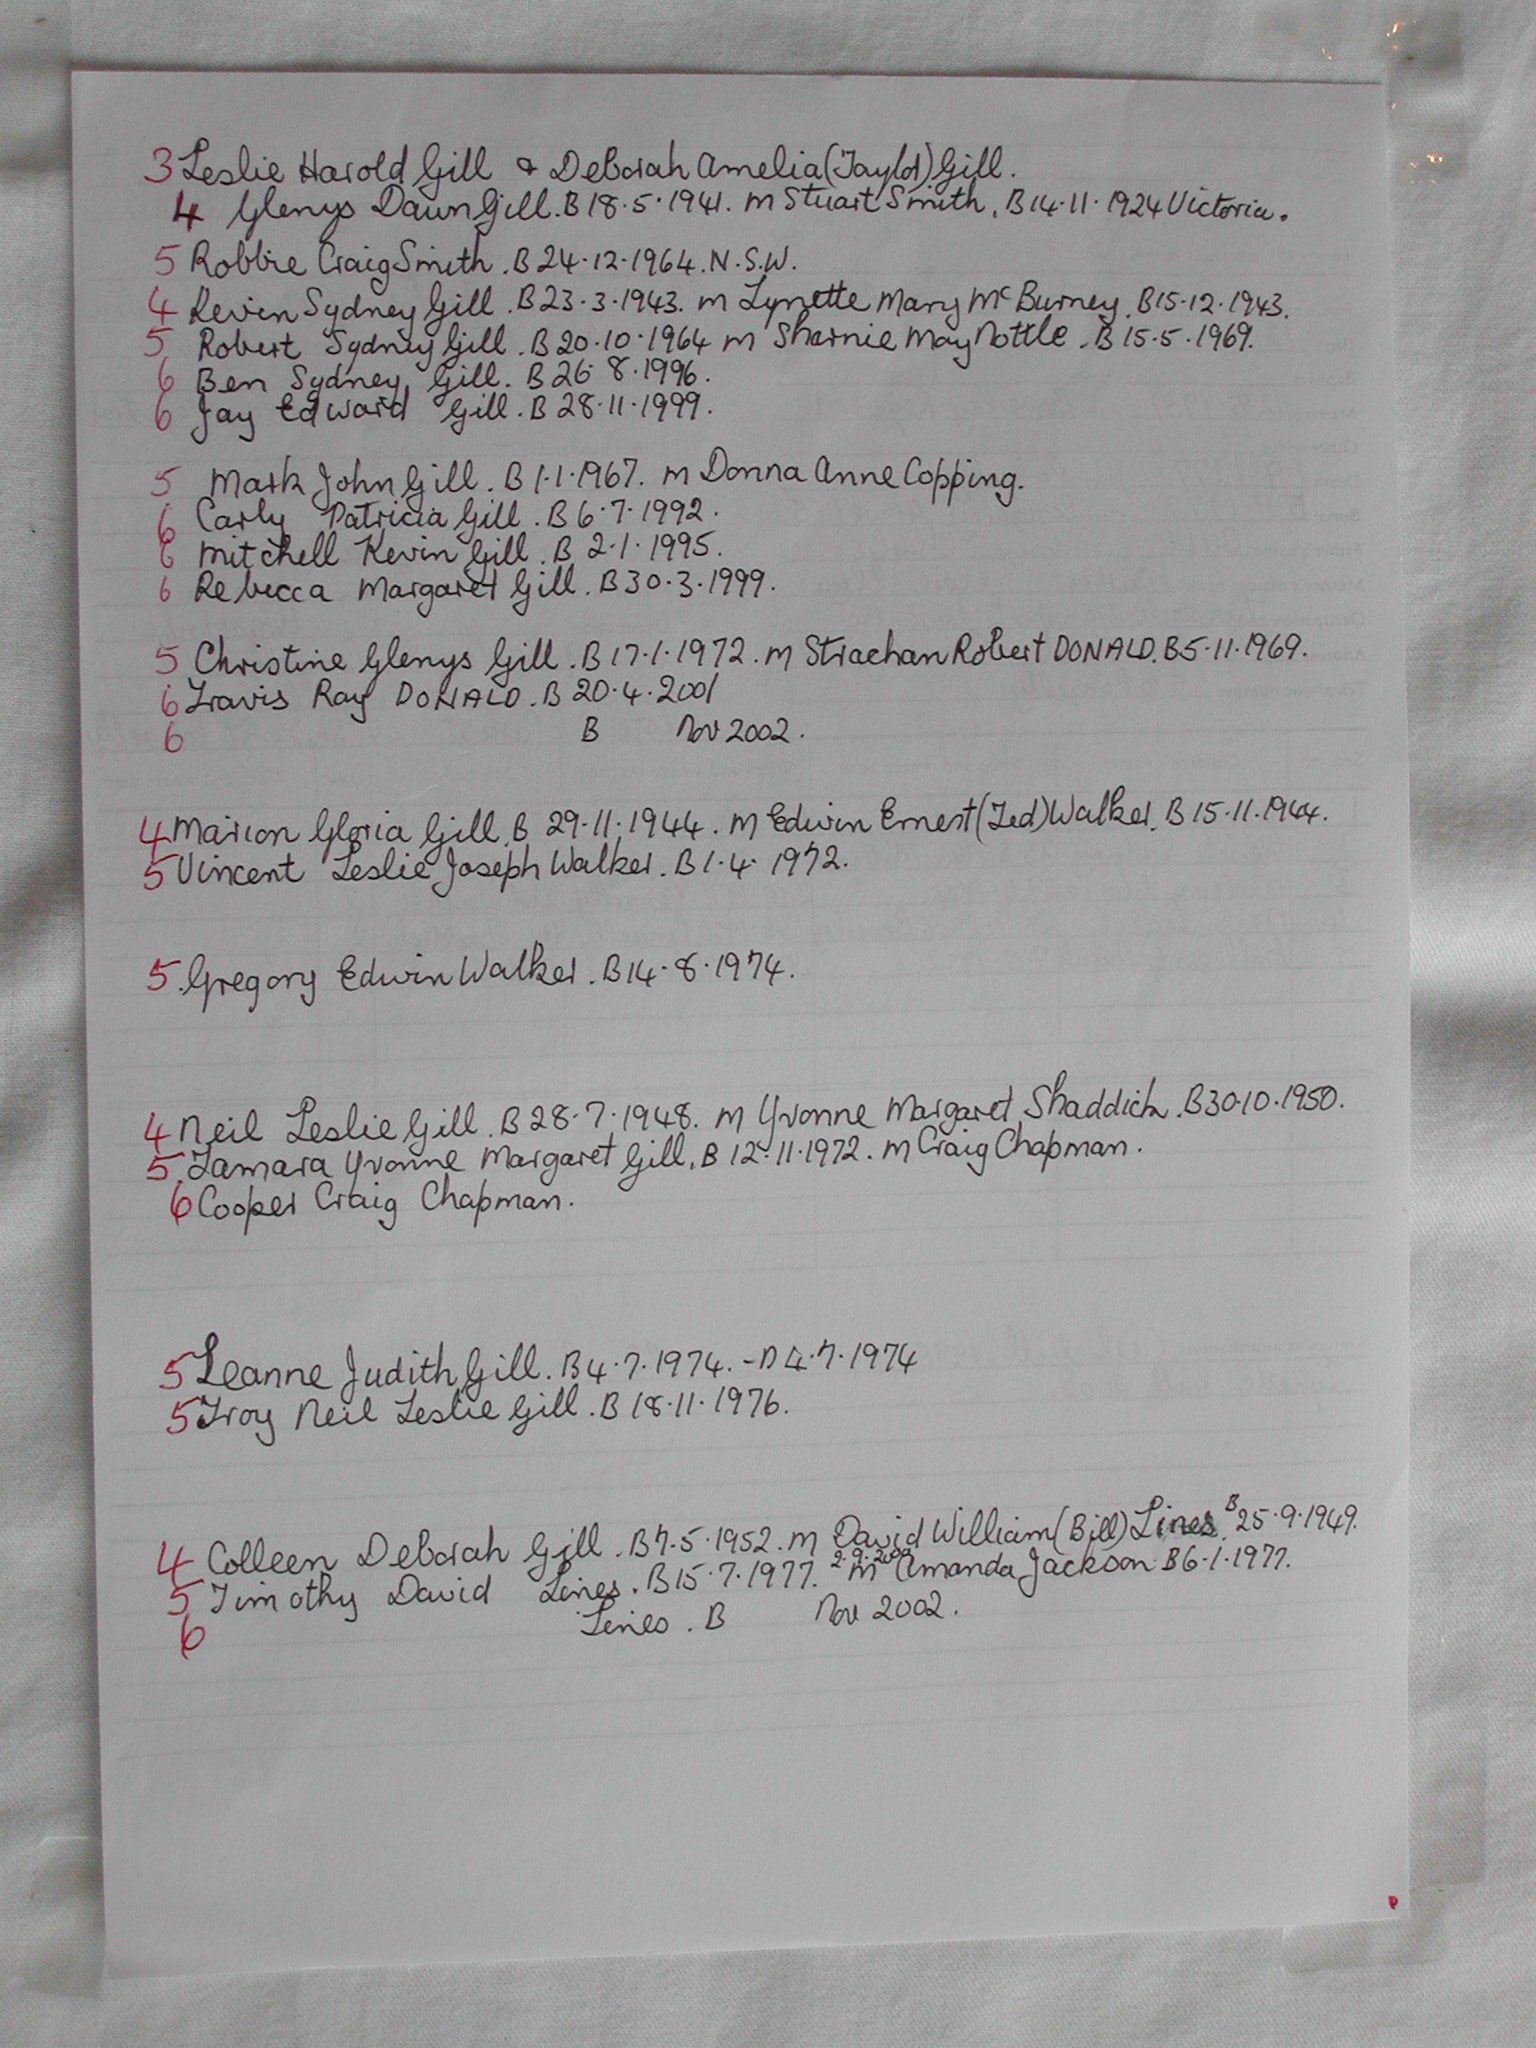 3 Leslie Harold Gill & Deborah Amelia (Taylor) Gill.
4 Glenys Dawn Gill. B 18.5.1941. m Stuart Smith. B 14.11.1924 Victoria.
5 Robbie Craig Smith. B 24.12.1964. N.S.W.
4 Kevin Sydney Gill. B 23.3.1943. m Lynette Mary McBurney. B 15.12.1943.
5 Robert Sydney Gill. B 20.10.1964 m Sharnie May Nottle. B 15.5.1969.
6 Ben Sydney Gill. B 26.8.1996.
6 Jay Edward Gill. B 28.11.1999.
5 Mark John Gill. B 1.1.1967. m Donna Anne Copping.
6 Carly Patricia Gill. B 6.7.1992.
6 Mitchell Kevin Gill. B 2.1.1995.
6 Rebecca Margaret Gill. B 30.3.1999.
5 Christine Glenys Gill. B 17.1.1972. m Strachan Robert DONALD. B 5.11.1969.
6 Travis Ray DONALD. B 20.4.2001
6 B Nov 2002.
4 Marion Gloria Gill. B 29.11.1944. m Edwin Ernest (Ted) Walker. B 15.11.1944.
5 Vincent Leslie Joseph Walker. B 1.4.1972.
5. Gregory Edwin Walker. B 14.8.1974.
4 Neil Leslie Gill. B 28.7.1948. m Yvonne Margaret Shaddick. B 30.10.1950.
5. Tamara Yvonne Margaret Gill. B 12.11.1972. m Craig Chapman.
6 Cooper Craig Chapman.
5 Leanne Judith Gill. B 4.7.1974. - D 4.7.1974
5 Troy Neil Leslie Gill. B 18.11.1976.
4 Colleen Deborah Gill. B 7.5.1952. m David William (Bill) Lines. B 25.9.1949.
5 Timothy David Lines. B 15.7.1977. 2.9.2000 m Amanda Jackson B 6.1.1977.
6 Lines. B Nov 2002.